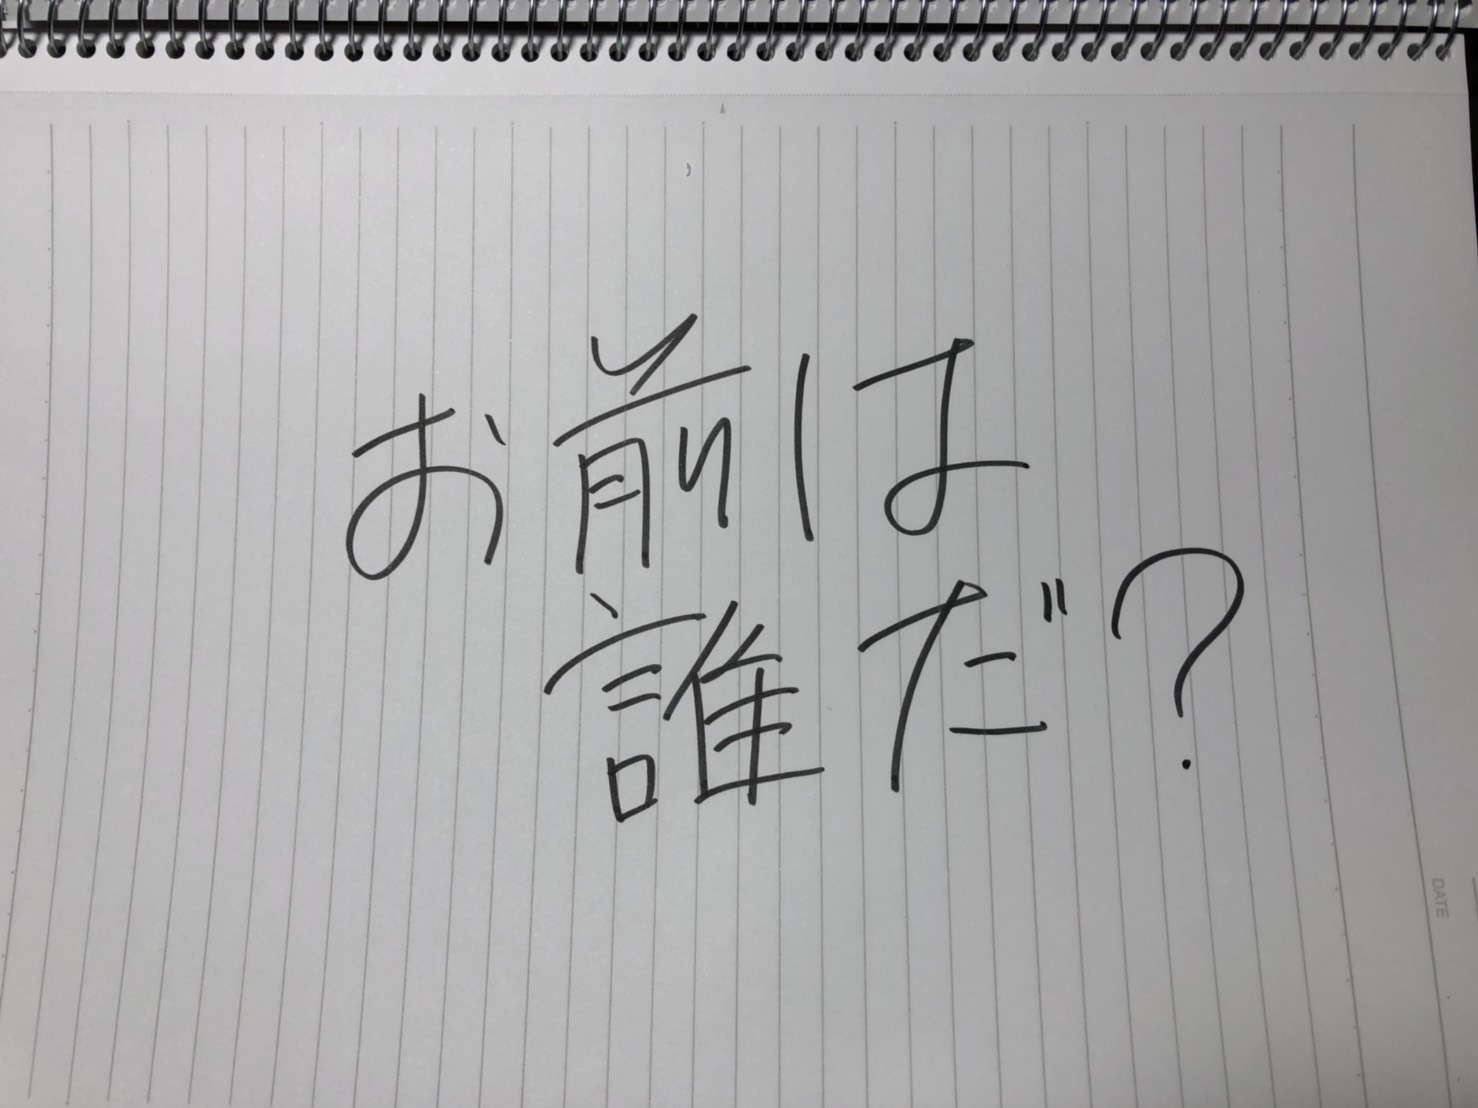 お前は
誰だ?
DATE